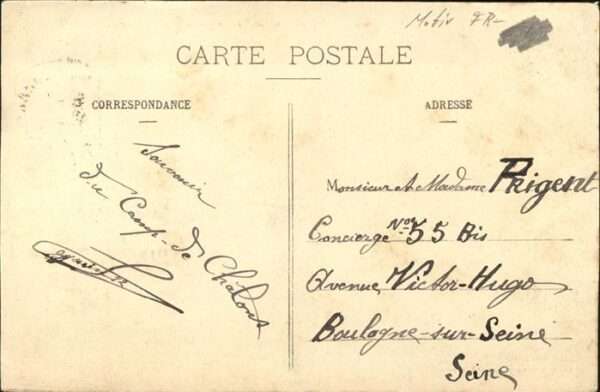 Motiv FR-
CARTE POSTALE
CORRESPONDANCE
Souvenir
du Camp-de
Châlons
ADRESSE
Monsieur et Madame Prigent
Concierge Nos 55 Bis
Avenue Victor-Hugo
Boulogne-sur-Seine
Seine